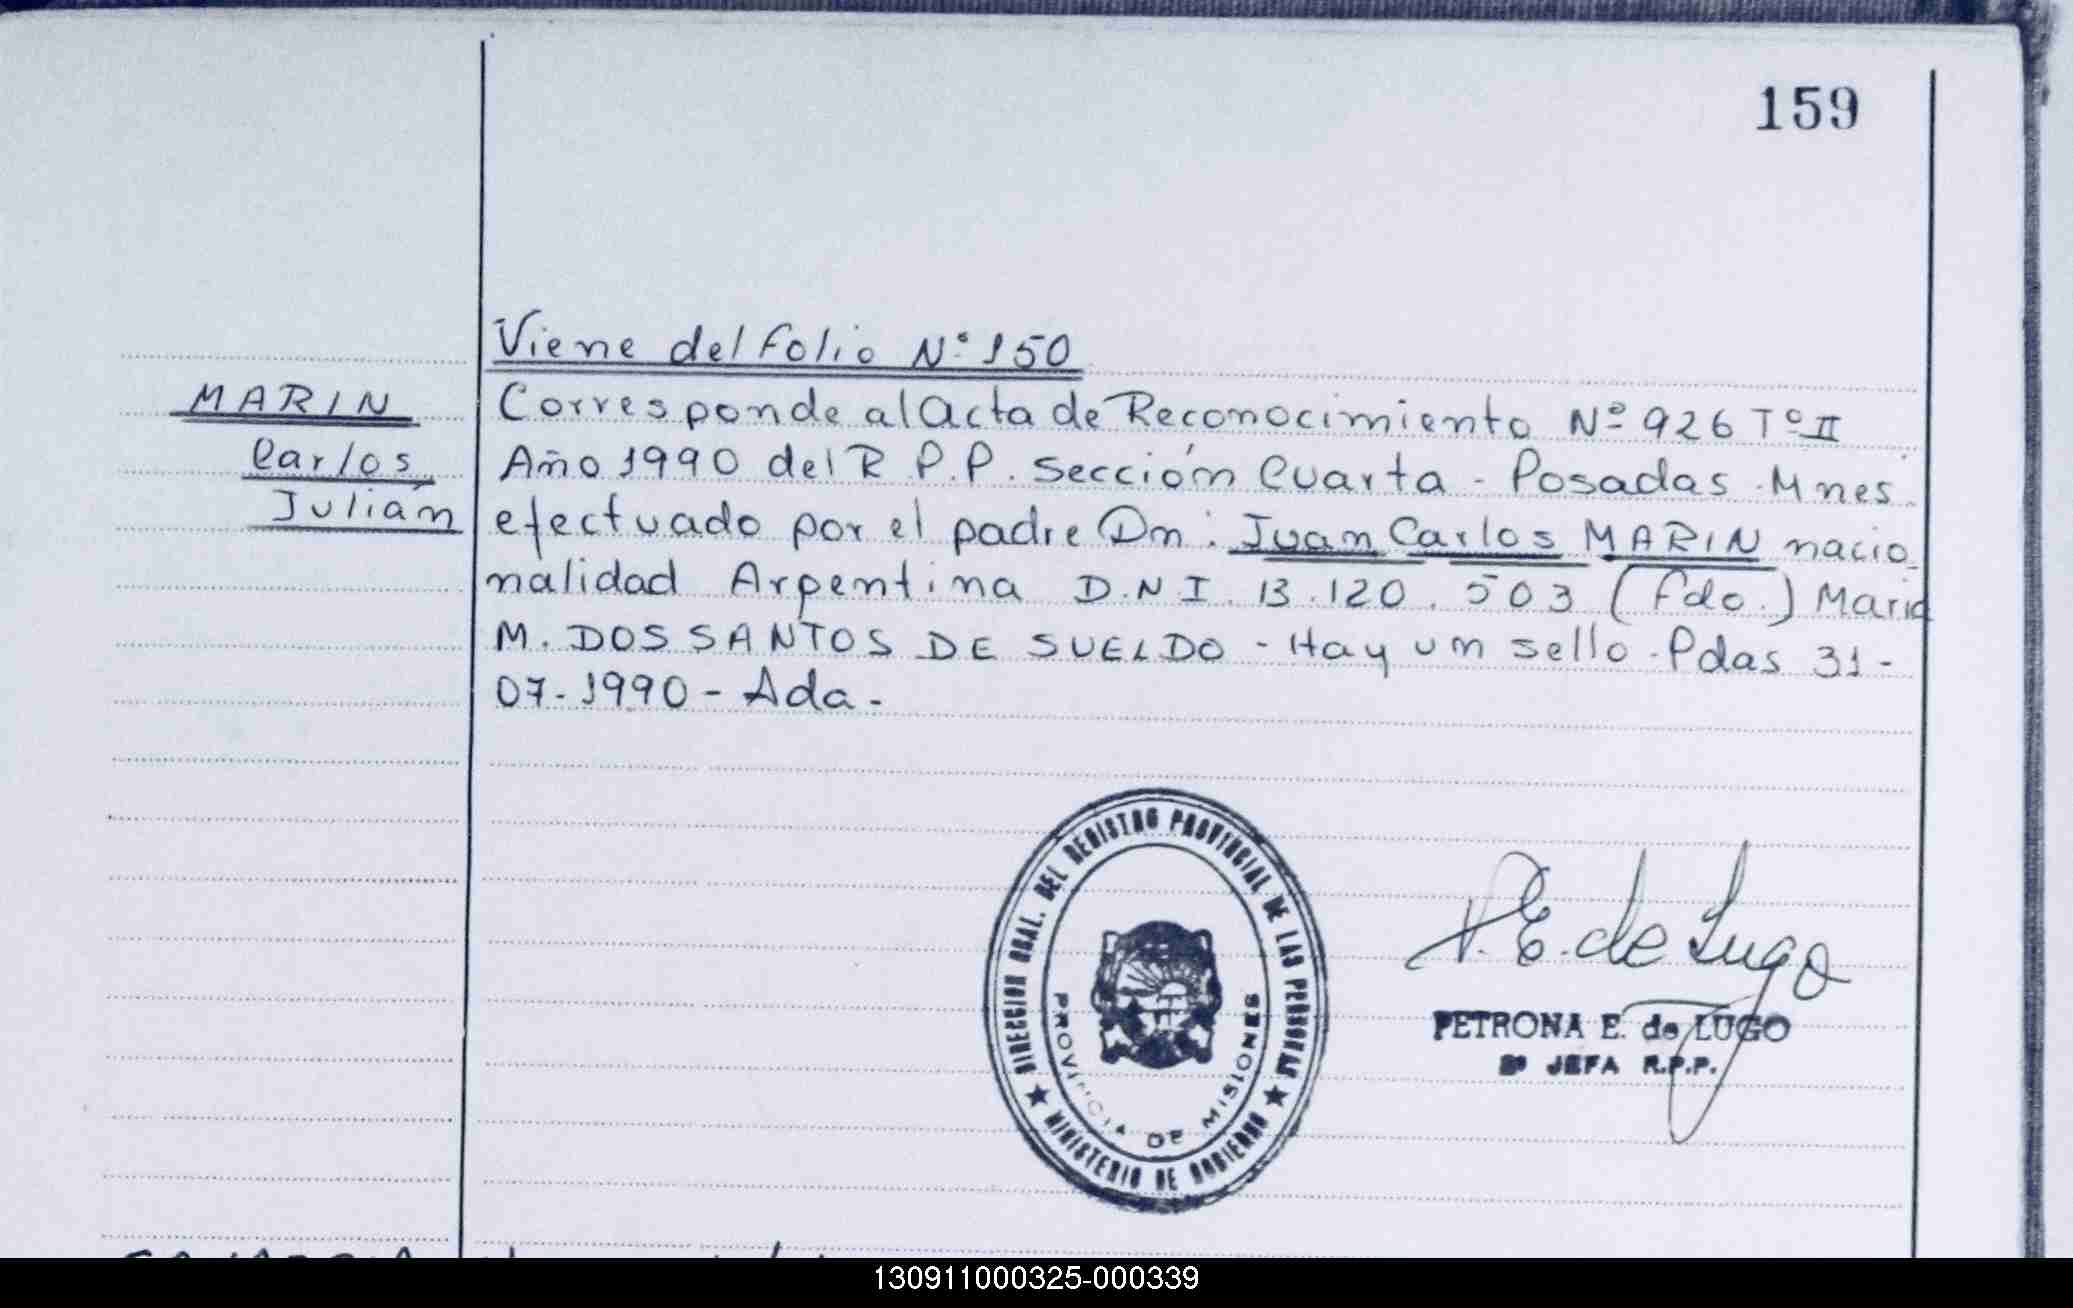 159
Viene del folio Nº 150
MARIN
Carlos
Julián
Corresponde al Acta de Reconocimiento Nº 926 Tº II
Año 1990 del R.P.P. Sección Cuarta - Posadas - Mnes.
efectuado por el padre Dn: Juan Carlos MARIN nacio
nalidad Argentina D.N.I. 13.120.503 (fdo.) Maria
M. DOS SANTOS DE SUELDO - Hay un sello - Pdas 31-
07-1990 - Ada -
DIRECCION GRAL. DEL REGISTRO PROVINCIAL DE LAS PERSONAS
MINISTERIO DE GOBIERNO
PROVINCIA DE MISIONES
P.E. de Lugo
PETRONA E. de LUGO
JEFA R.P.P.
130911000325-000339